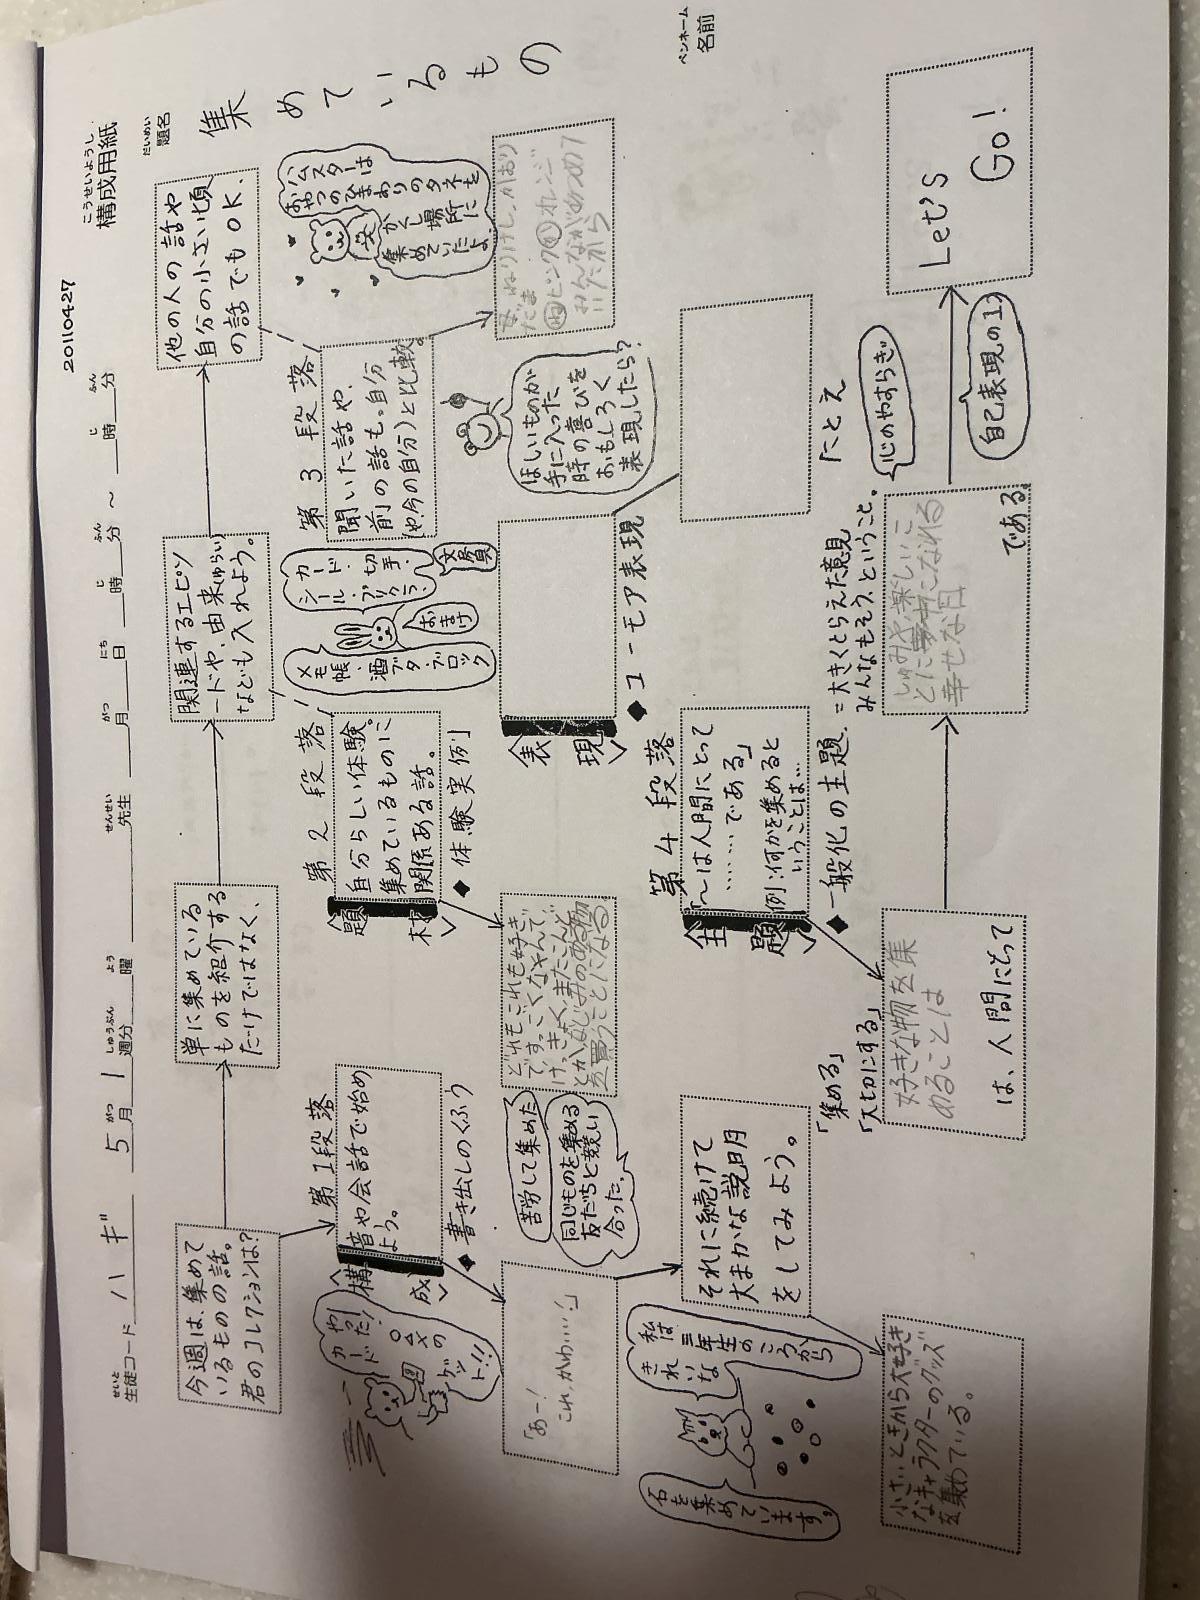 20110427
こうせいようし
構成用紙
せいと
生徒コード ハギ 5月 1週分 曜 先生 月 日 時 分 ～ 時 分
だいめい
題名
集めているもの
ペンネーム
名前
今週は、集めて
いるものの話。
君のコレクションは?
単に集めている
ものを紹介する
だけではなく、
関連するエピソ
ードや、由来(ゆらい)
なども入れよう。
他の人の話や
自分の小さい頃
の話でもOK.
第1段落
〈構成〉
音や会話で始め
よう。
◆書き出しのくふう
やった!
カード
○△×の
ゲット!!
「あー!
これ、かわ…!」
それに続けて
大まかな説明
をしてみよう。
私は
三年生のころから
きれいな
石を集めています。
小さいときから大好き
なキャラクターのグッズ
を集めている。
第2段落
〈題材〉
自分らしい体験。
集めているものに
関係ある話。
◆体験実例
メモ帳・酒
ブタ・ブロック
おまけ
カード・切手・
シール・
文房具
苦労して集めた
同じものを集める
友だちと競い
合った。
どれもこれも好き
で、すっごくなやんで、
けっきょく、またこんど
を買うことになる
第3段落
聞いた話や、
前の話も。自分
(や今の自分)と比較。
ハムスターは
おやつのひまわりのタネを
かくし場所に
集めていたよ。
〈表現〉
◆ユーモア表現
ほしいものが
手に入った
時の喜びを
おもしろく
表現したら?
たとえ
第4段落
〈主題〉
「～は人間にとって
……である」
例:何かを集めると
いうことは…
◆一般化の主題 =大きくとらえた意見
みんなもそう、ということ。
「集める」
「大切にする」
好きな物を集
めることは
は、人間にとって
しゅみや、楽しいこ
とに
幸せな日
である。
心のやすらぎ
自己表現の1つ
Let's
Go!